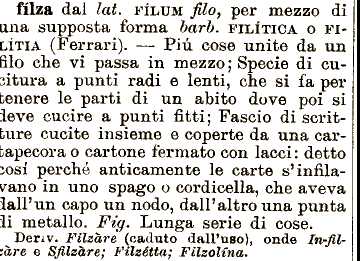 fílza dal lat. FÍLUM filo, per mezzo di
una supposta forma barb. FILÍTICA o FI-
LÍTIA (Ferrari). — Piú cose unite da un
filo che vi passa in mezzo; Specie di cu-
citura a punti radi e lenti, che si fa per
tenere le parti di un abito dove poi si
deve cucire a punti fitti; Fascio di scrit-
ture cucite insieme e coperte da una car-
tapecora o cartone fermato con lacci: detto
cosí perché anticamente le carte s'infila-
vano in uno spago o cordicella, che aveva
dall'un capo un nodo, dall'altro una punta
di metallo. Fig. Lunga serie di cose.
Deriv. Filzàre (caduto dall'uso), onde In-fil-
zàre e Sfilzàre; Filzétta; Filzolína.